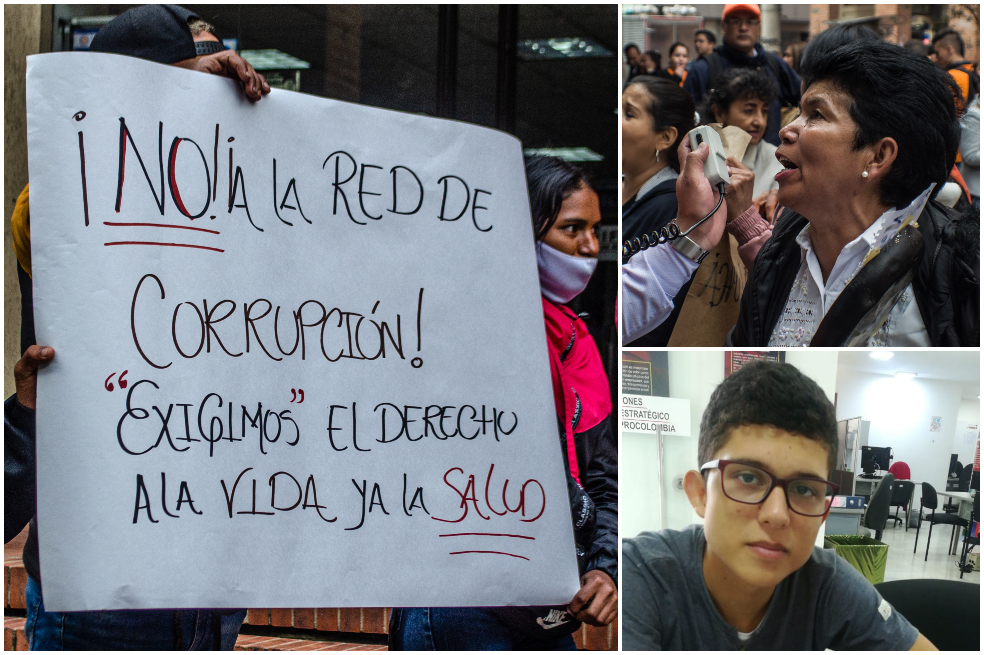 ¡NO! A LA RED DE
CORRUPCIÓN!
“EXIGIMOS” EL DERECHO
A LA VIDA YA LA SALUD
NIKE
CLASSIC
ONES
ESTRATÉGICO
PROCOLOMBIA